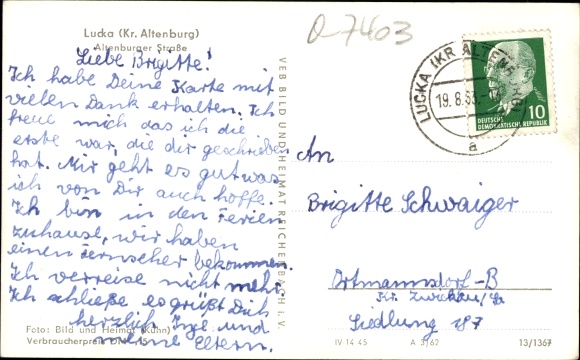 Lucka (Kr. Altenburg)
Altenburger Straße
Liebe Brigitte!
Ich habe Deine Karte mit
vielen Dank erhalten. Ich
freue mich das ich die
erste war, die dir geschrieben
hat. Mir geht es gut was
ich von Dir auch hoffe.
Ich bin in den Ferien
zuhause, wir haben
einen Fernseher bekommen.
Ich verreise nicht mehr.
Ich schließe es grüßt Dich
herzlich Inge und
meine Eltern.
Foto: Bild und Heimat (Kühn)
Verbraucherpreis DM
VEB BILD UND HEIMAT REICHENBACH I. V.
0 7403
LUCKA (KR ALTENBURG)
19.8.63
a
10
DEUTSCHE
DEMOKRATISCHE REPUBLIK
An
Brigitte Schwaiger
Ortmannsdorf-B
Kr. Zwickau/Sa
Siedlung 187
IV 14 45 A 3/62 13/1367